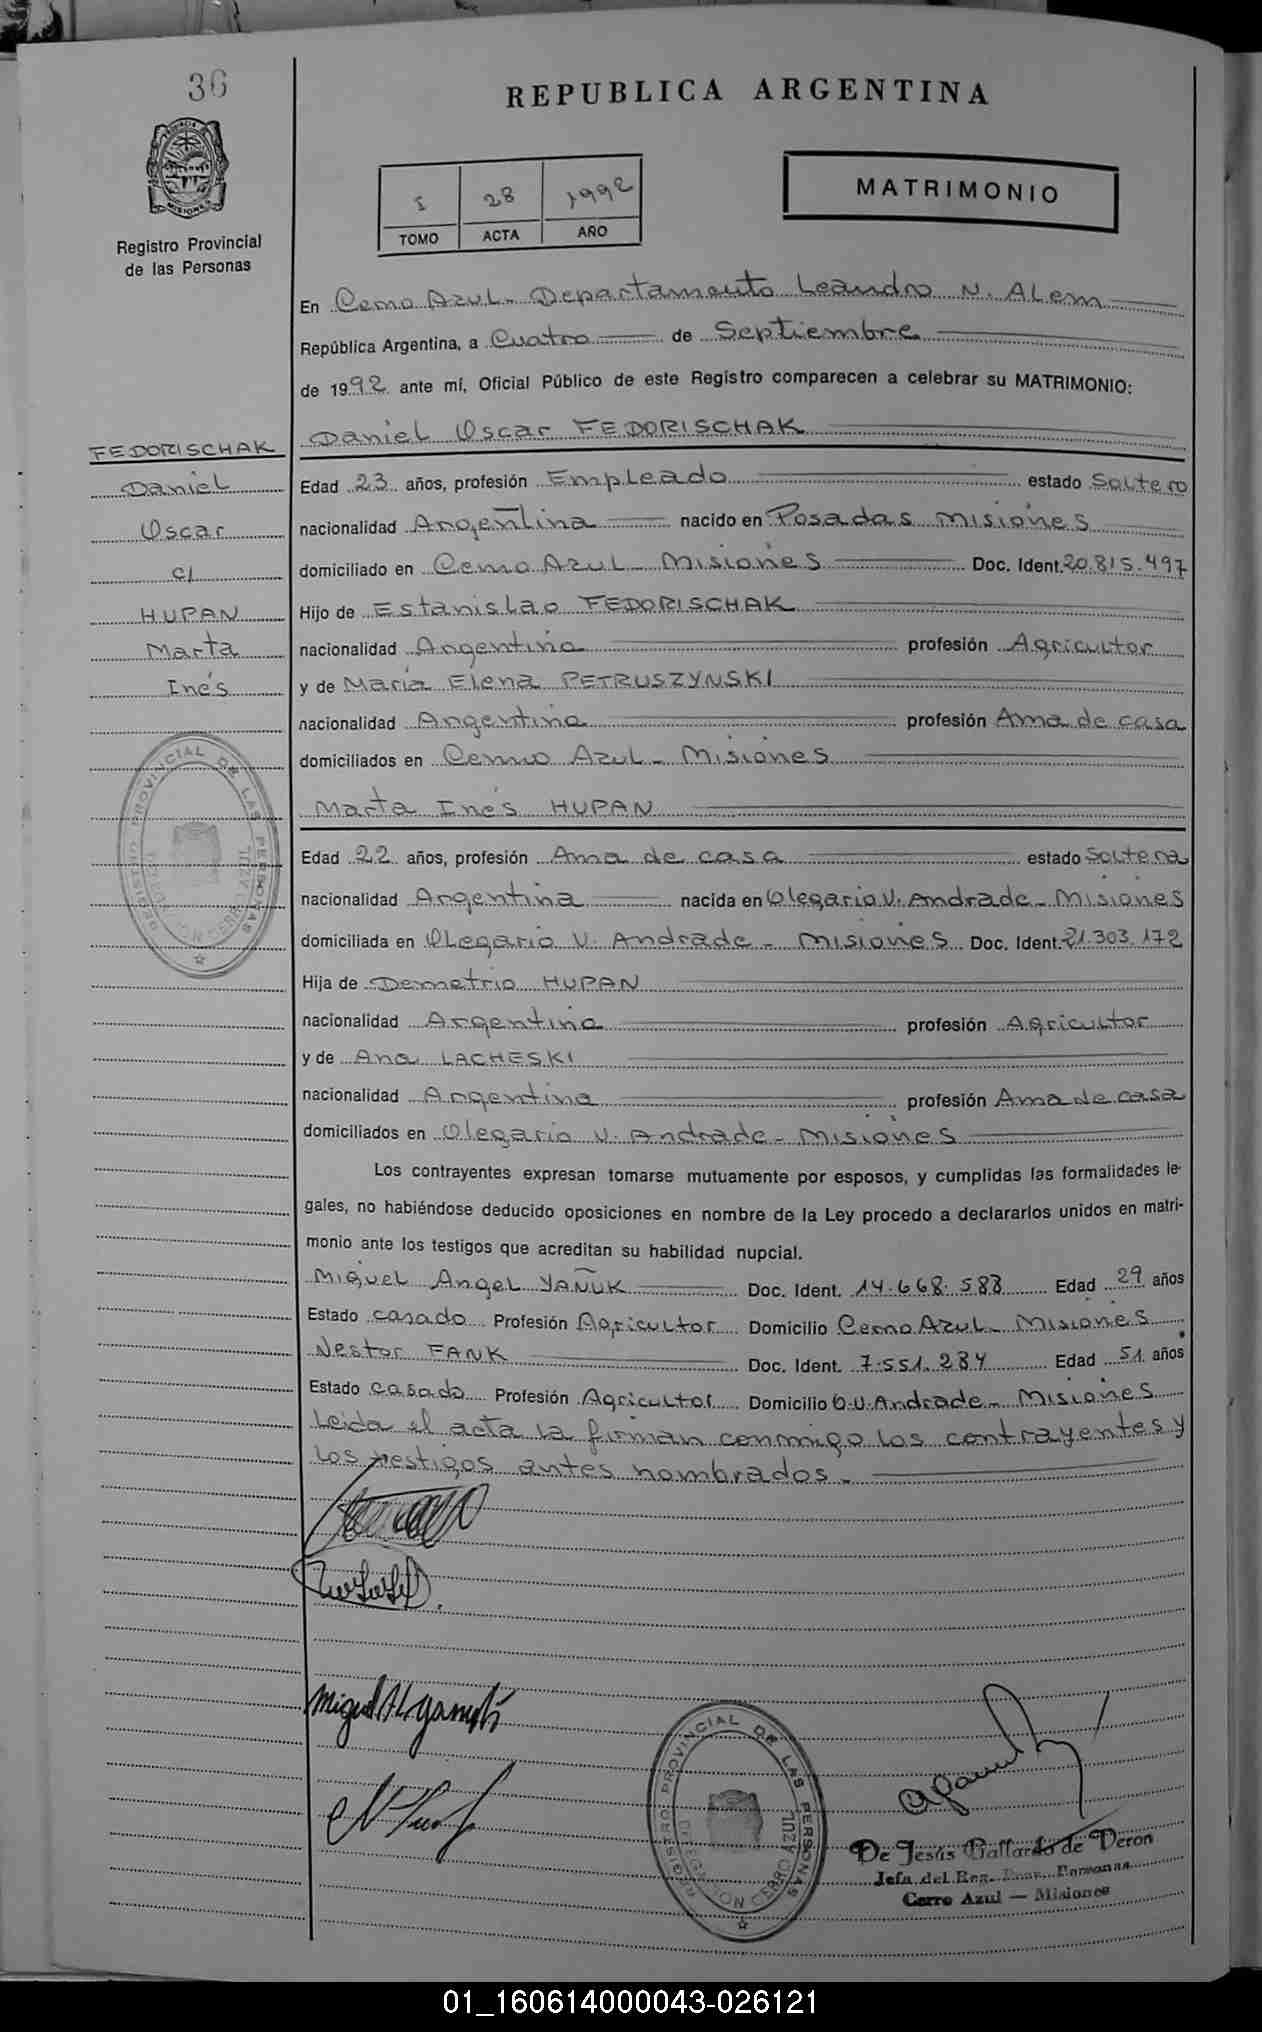 36
REPUBLICA ARGENTINA
PROVINCIA DE MISIONES
Registro Provincial
de las Personas
I 28 1992
TOMO ACTA AÑO
MATRIMONIO
En Cerro Azul - Departamento Leandro N. Alem
República Argentina, a Cuatro de Septiembre
de 1992 ante mí, Oficial Público de este Registro comparecen a celebrar su MATRIMONIO:
FEDORISCHAK
Daniel
Oscar
c/
HUPAN
Marta
Inés
Daniel Oscar FEDORISCHAK
Edad 23 años, profesión Empleado estado Soltero
nacionalidad Argentina nacido en Posadas Misiones
domiciliado en Cerro Azul - Misiones Doc. Ident. 20.815.497
Hijo de Estanislao FEDORISCHAK
nacionalidad Argentina profesión Agricultor
y de María Elena PETRUSZYNSKI
nacionalidad Argentina profesión Ama de casa
domiciliados en Cerro Azul - Misiones
Marta Inés HUPAN
Edad 22 años, profesión Ama de casa estado Soltera
nacionalidad Argentina nacida en Olegario V. Andrade - Misiones
domiciliada en Olegario V. Andrade - Misiones Doc. Ident. 21.303.172
Hija de Demetrio HUPAN
nacionalidad Argentina profesión Agricultor
y de Ana LACHESKI
nacionalidad Argentina profesión Ama de casa
domiciliados en Olegario V. Andrade - Misiones
Los contrayentes expresan tomarse mutuamente por esposos, y cumplidas las formalidades le-
gales, no habiéndose deducido oposiciones en nombre de la Ley procedo a declararlos unidos en matri-
monio ante los testigos que acreditan su habilidad nupcial.
Miguel Angel YAÑUK Doc. Ident. 14.668.588 Edad 29 años
Estado casado Profesión Agricultor Domicilio Cerro Azul - Misiones
Nestor FANK Doc. Ident. 7.551.284 Edad 51 años
Estado casado Profesión Agricultor Domicilio O.V. Andrade - Misiones
Leida el acta la firman conmigo los contrayentes y
los testigos antes nombrados -
REGISTRO PROVINCIAL DE LAS PERSONAS
DELEGACION CERRO AZUL
REGISTRO PROVINCIAL DE LAS PERSONAS
DELEGACION CERRO AZUL
De Jesús Gallardo de Deron
Jefa del Reg. Prov. Personas
Cerro Azul — Misiones
01_160614000043-026121